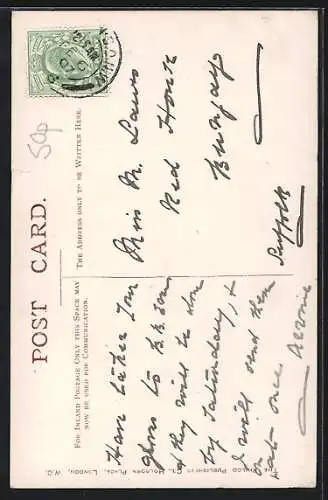 POST CARD.
FOR INLAND POSTAGE ONLY THIS SPACE MAY
NOW BE USED FOR COMMUNICATION.
THE ADDRESS ONLY TO BE WRITTEN HERE.
50p
Have taken your
gloves to B.B. 
& they will be done
by Saturday, &
I will send them
on at once
Miss M. Laws
Red House
Bungay
Suffolk
PUBLISHING Co., HOLBORN PLACE, LONDON, W.C.